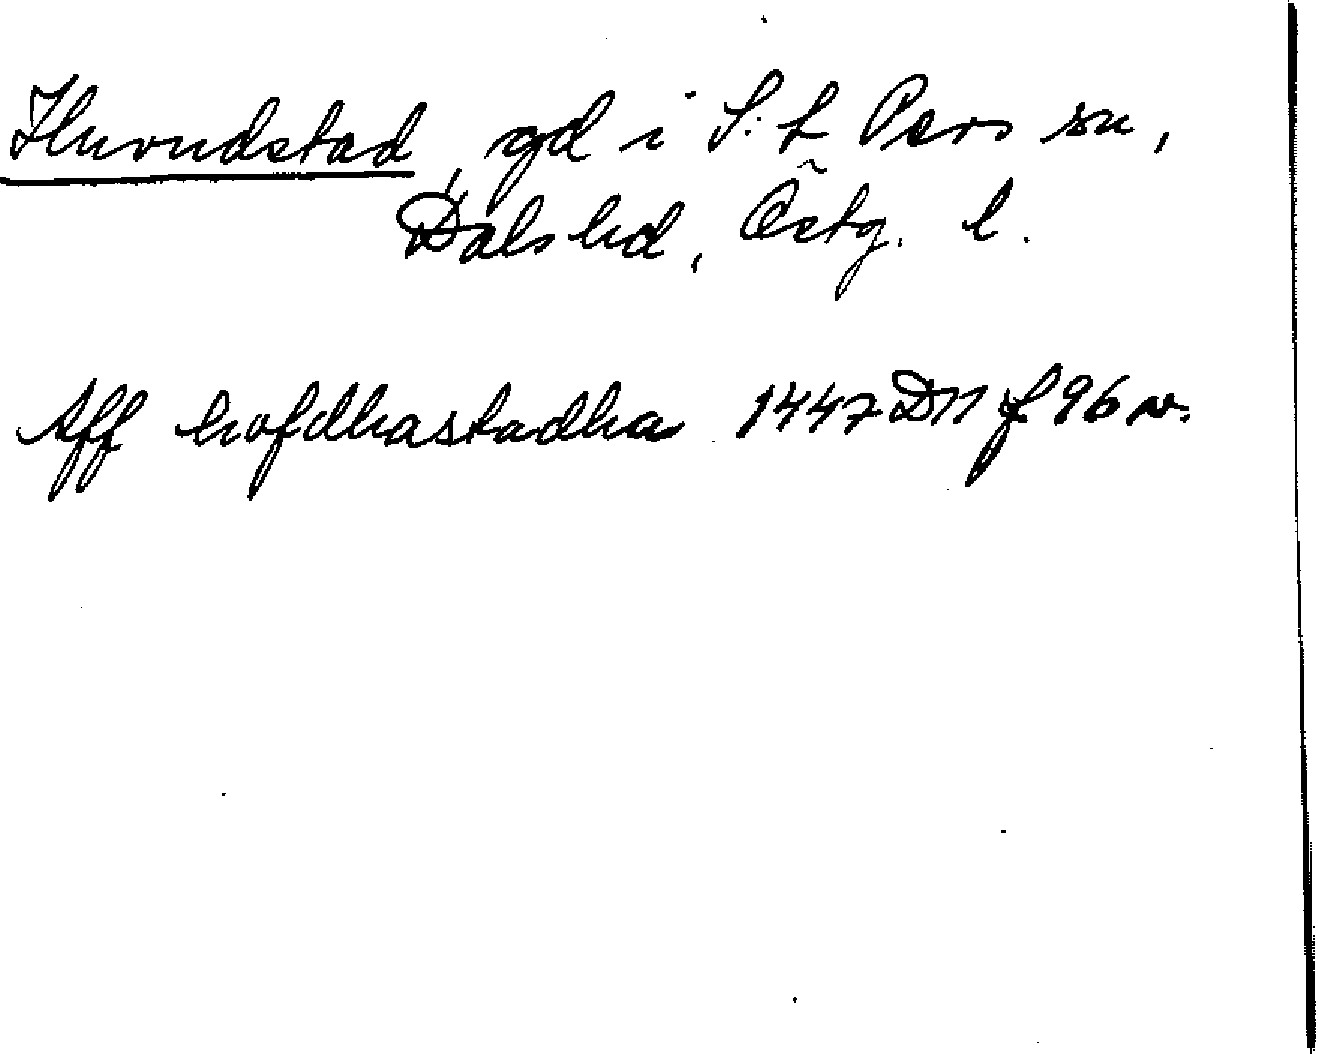 Huvudstad, gd i S:t Pers sn,
Dals hd, Östg. l.
Aff hofdhastadha 1447 DN f 96 v.